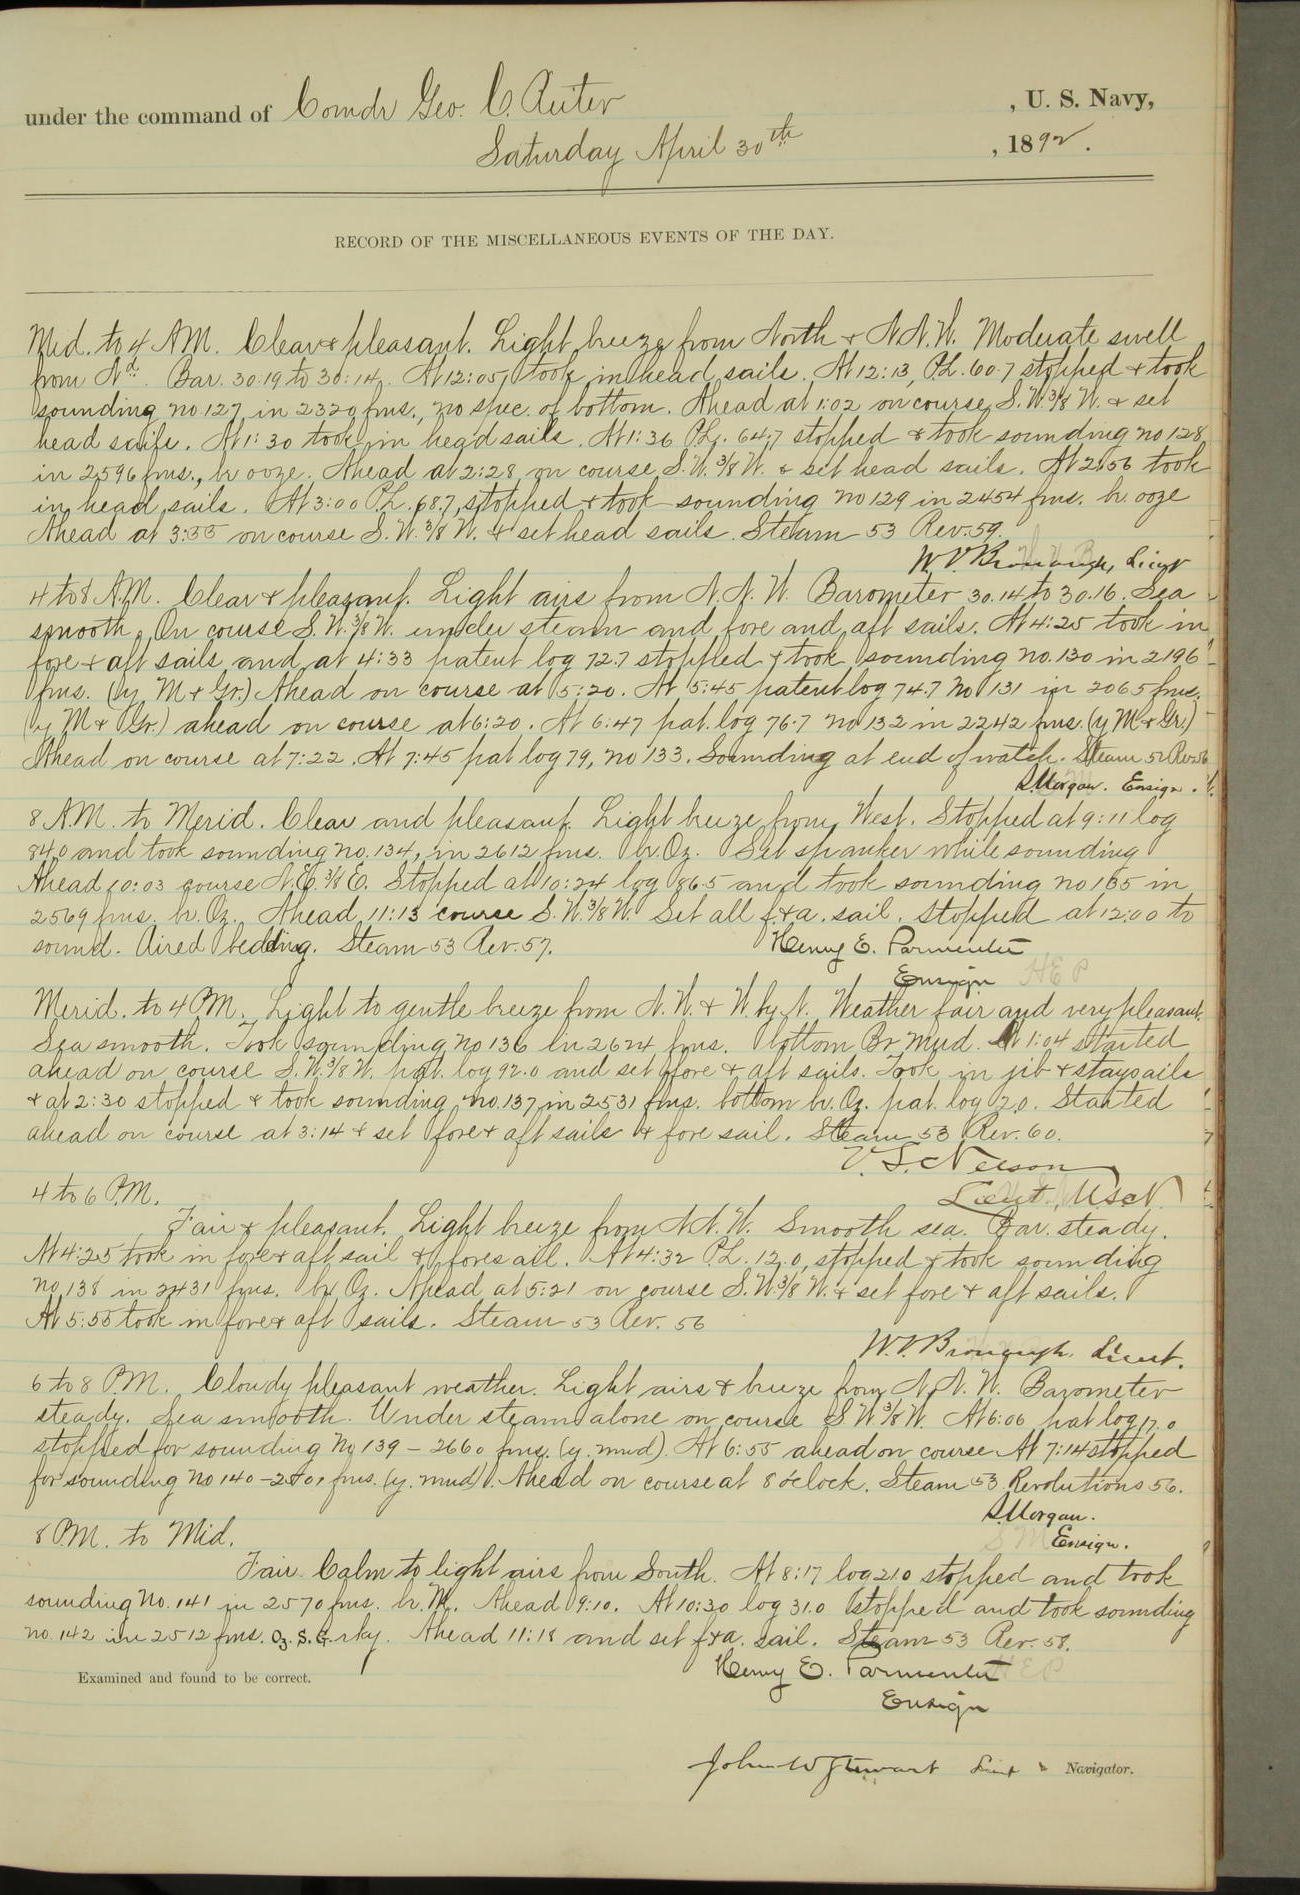 under the command of Comdr Geo. C. Reiter , U. S. Navy,
Saturday April 30th , 1892.
RECORD OF THE MISCELLANEOUS EVENTS OF THE DAY.
Mid. to 4 A.M. Clear & pleasant. Light breeze from North & N.N.W. Moderate swell
from Nd. Bar. 30.19 to 30.14. At 12:05, took in head sails. At 12:13, P.L. 60.7 stopped & took
sounding no 127 in 2320 fms., no spec. of bottom. Ahead at 1:02 on course S.W.3/8 W. & set
head sails. At 1:30 took in head sails. At 1:36 P.L. 64.7 stopped & took sounding no 128
in 2596 fms., br ooze. Ahead at 2:28 on course S.W.3/8 W. & set head sails. At 2:56 took
in head sails. At 3:00 P.L. 68.7, stopped & took sounding no 129 in 2454 fms. br. ooze
Ahead at 3:55 on course S.W.3/8 W. & set head sails. Steam 53 Rev. 59.
W.V. Bronaugh, Lieut
4 to 8 A.M. Clear & pleasant. Light airs from N.N.W. Barometer 30.14 to 30.16. Sea
smooth. On course S.W.3/8 W. under steam and fore and aft sails. At 4:25 took in
fore & aft sails and at 4:33 patent log 72.7 stopped & took sounding no. 130 in 2196
fms. (y M & Gr.) Ahead on course at 5:20. At 5:45 patent log 74.7 no 131 in 2065 fms.
(y M & Gr.) ahead on course at 6:20. At 6:47 pat. log 76.7 no 132 in 2242 fms. (y M & Gr.)
Ahead on course at 7:22. At 7:45 pat log 79, no 133. Sounding at end of watch. Steam 52 Rev 56
S. Morgan. Ensign.
8 A.M. to Merid. Clear and pleasant. Light breeze from West. Stopped at 9:11 log
84.0 and took sounding no. 134, in 2612 fms. br. Oz. Set spanker while sounding
Ahead 10:03 course N.E.3/8 E. Stopped at 10:24 log 86.5 and took sounding no 135 in
2569 fms. br. Oz. Ahead 11:13 course S.W.3/8 W. Set all f. & a. sail. Stopped at 12:00 to
sound. Aired bedding. Steam 53 Rev. 57.
Henry E. Parmenter
Ensign HEP
Merid. to 4 P.M. Light to gentle breeze from N.W. & W. by N. Weather fair and very pleasant.
Sea smooth. Took sounding no 136 in 2624 fms. bottom Br Mud. At 1:04 started
ahead on course S.W.3/8 W. pat. log 92.0 and set fore & aft sails. Took in jib & staysails
& at 2:30 stopped & took sounding no. 137 in 2531 fms. bottom br. Oz. pat. log 2.0. Started
ahead on course at 3:14 & set fore & aft sails & fore sail. Steam 53 Rev. 60.
V. S. Nelson
Lieut, U.S.N.
4 to 6 P.M.
Fair & pleasant. Light breeze from N.N.W. Smooth sea. Bar. steady.
At 4:25 took in fore & aft sail & foresail. At 4:32 P.L. 12.0, stopped & took sounding
no 138 in 2431 fms. br. Oz. Ahead at 5:21 on course S.W.3/8 W. & set fore & aft sails.
At 5:55 took in fore & aft sails. Steam 53 Rev. 56
W.V. Bronaugh, Lieut.
6 to 8 P.M. Cloudy pleasant weather. Light airs & breeze from N.N.W. Barometer
steady. Sea smooth. Under steam alone on course S W 3/8 W. At 6:06 pat log 17.0
stopped for sounding No 139 - 2660 fms. (y. mud). At 6:55 ahead on course. At 7:14 stopped
for sounding no 140 - fms. (y. mud). Ahead on course at 8 o'clock. Steam 53 Revolutions 56.
S. Morgan.
Ensign.
8 P.M. to Mid.
Fair. Calm to light airs from South. At 8:17 log 21.0 stopped and took
sounding No. 141 in 2570 fms. br. M. Ahead 9:10. At 10:30 log 31.0 stopped and took sounding
no 142 in 2512 fms. Oz. S. G. rky. Ahead 11:18 and set f & a. sail. Steam 53 Rev. 58.
Henry E. Parmenter HEP
Ensign
Examined and found to be correct.
John W Stewart Lieut Navigator.